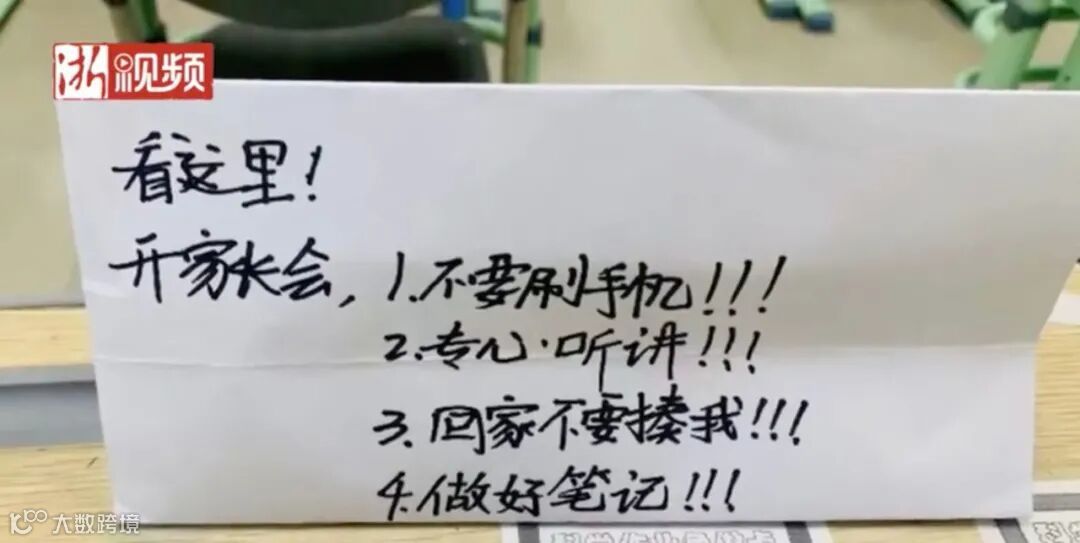 浙视频
看这里!
开家长会,1.不要刷手机!!!
2.专心·听讲!!!
3.回家不要揍我!!!
4.做好笔记!!!
大数跨境